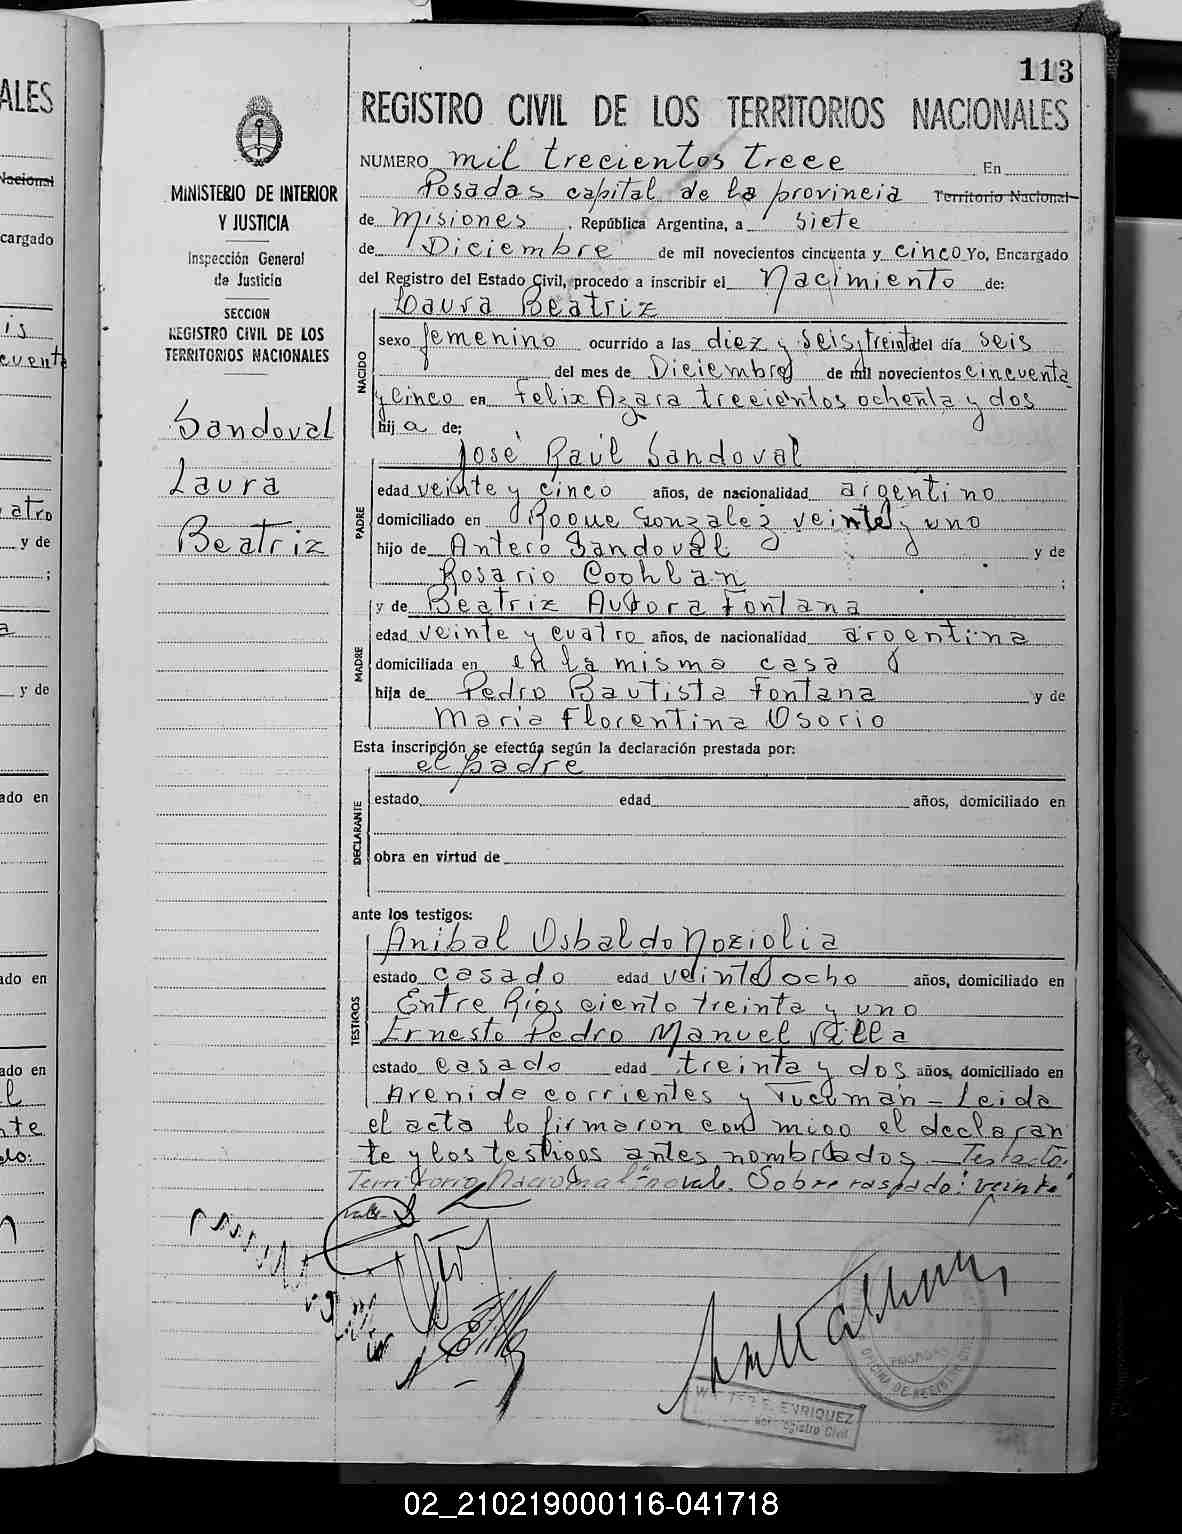 113
REGISTRO CIVIL DE LOS TERRITORIOS NACIONALES
NUMERO mil trecientos trece En
Posadas capital de la provincia Territorio Nacional
de Misiones, República Argentina, a siete
de Diciembre de mil novecientos cincuenta y cinco Yo, Encargado
del Registro del Estado Civil, procedo a inscribir el Nacimiento de:
Laura Beatriz
NACIDO
sexo femenino ocurrido a las diez y seis y treinta del día seis
del mes de Diciembre de mil novecientos cincuenta
y cinco en Felix Azara trecientos ochenta y dos
hija de:
José Raúl Sandoval
PADRE
edad veinte y cinco años, de nacionalidad argentino
domiciliado en Roque Gonzalez veinte y uno
hijo de Antero Sandoval y de
Rosario Coohlan ;
y de Beatriz Aurora Fontana
MADRE
edad veinte y cuatro años, de nacionalidad argentina
domiciliada en en la misma casa
hija de Pedro Bautista Fontana y de
Maria Florentina Osorio
Esta inscripción se efectúa según la declaración prestada por:
el padre
DECLARANTE
estado edad años, domiciliado en
obra en virtud de
ante los testigos:
TESTIGOS
Anibal Osbaldo Noziolia
estado casado edad veinte ocho años, domiciliado en
Entre Rios ciento treinta y uno
Ernesto Pedro Manuel Villa
estado casado edad treinta y dos años, domiciliado en
Avenida corrientes y Tucumán - Leida
el acta lo firmaron con migo el declaran
te y los testigos antes nombrados - Testado:
Territorio Nacional" no vale. Sobre raspado: "veinte"
vale.-
MINISTERIO DE INTERIOR
Y JUSTICIA
Inspección General
de Justicia
SECCION
REGISTRO CIVIL DE LOS
TERRITORIOS NACIONALES
Sandoval
Laura
Beatriz
POSADAS
OFICINA DE REGISTRO CIVIL
E. ENRIQUEZ
Registro Civil
ALES
Nacional
cargado
is
cuenta
atro
y de
;
a
y de
ado en
ado en
ado en
l
nte
do:
02_210219000116-041718